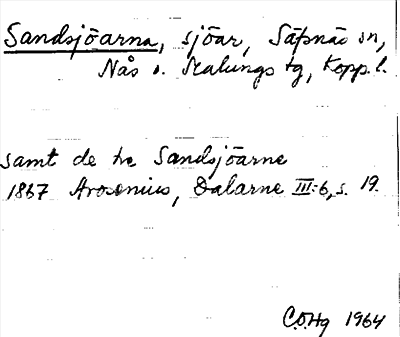 Sandsjöarna, sjöar, Säfsnäs sn,
Nås o. Malungs tg, Kopp. l.
samt de tre Sandsjöarne
1867 Arosenius, Dalarne III:6, s. 19.
C.O.Hg 1964